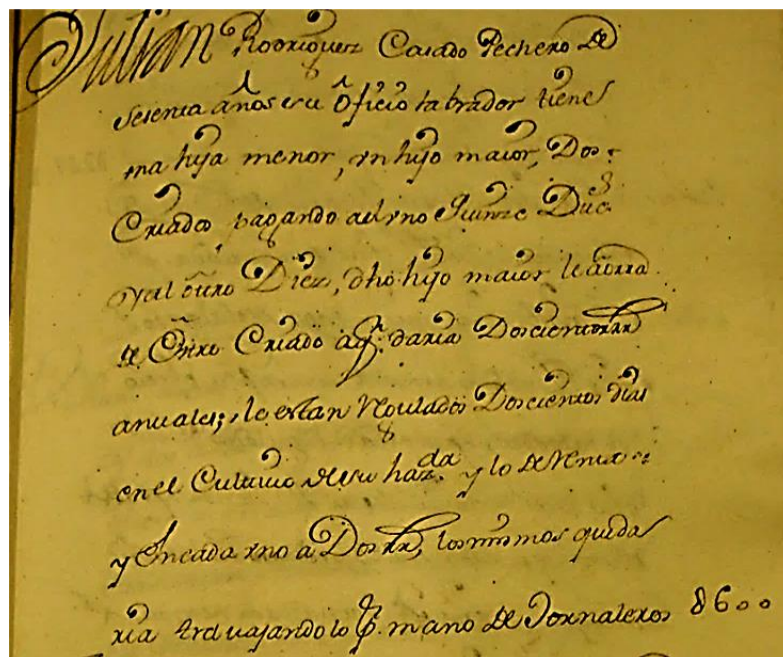 Julian Rodriguez Casado Pechero de
sesenta años es su Oficio labrador tiene
una hija menor, un hijo maior, Dos
Criados pagando al uno Quinze Duc.s
y al otro Diez, dho hijo maior le aorra
de Otro Criado a q.n daria Doscientos rr
anuales; le estan regulados Doscientos dias
en el Cultivo de su haz.da y lo de
y En cada uno a Dos rr, los mismos que da
ria travajandolo p.r mano de Jornaleros 8600